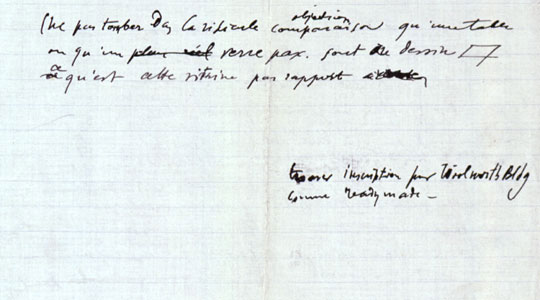 (Ne pas tomber Ds la ridicule comparaison objection qu'une table
ou qu'un verre par. sont de dessin
ce qu'est cette vitrine par rapport
trouver inscription pour Woolworth Bldg
comme readymade —